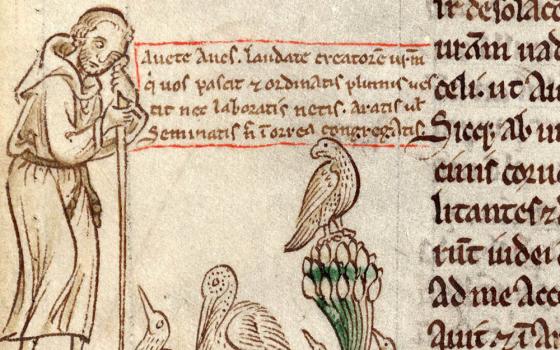 Auete Aues. laudate creatorē urm̄
q̇ uos pascit ⁊ ordinatis plumis ues
tit nec laboratis netis. Aratis ul
Seminatis n̄ ī orrea congregatis
ir desolac
urām uad
celi. ut Au
Sicq; ab
ciuis coru
litantes ⁊
rūt iudei
Ad me Acc
Auit ⁊ ī A